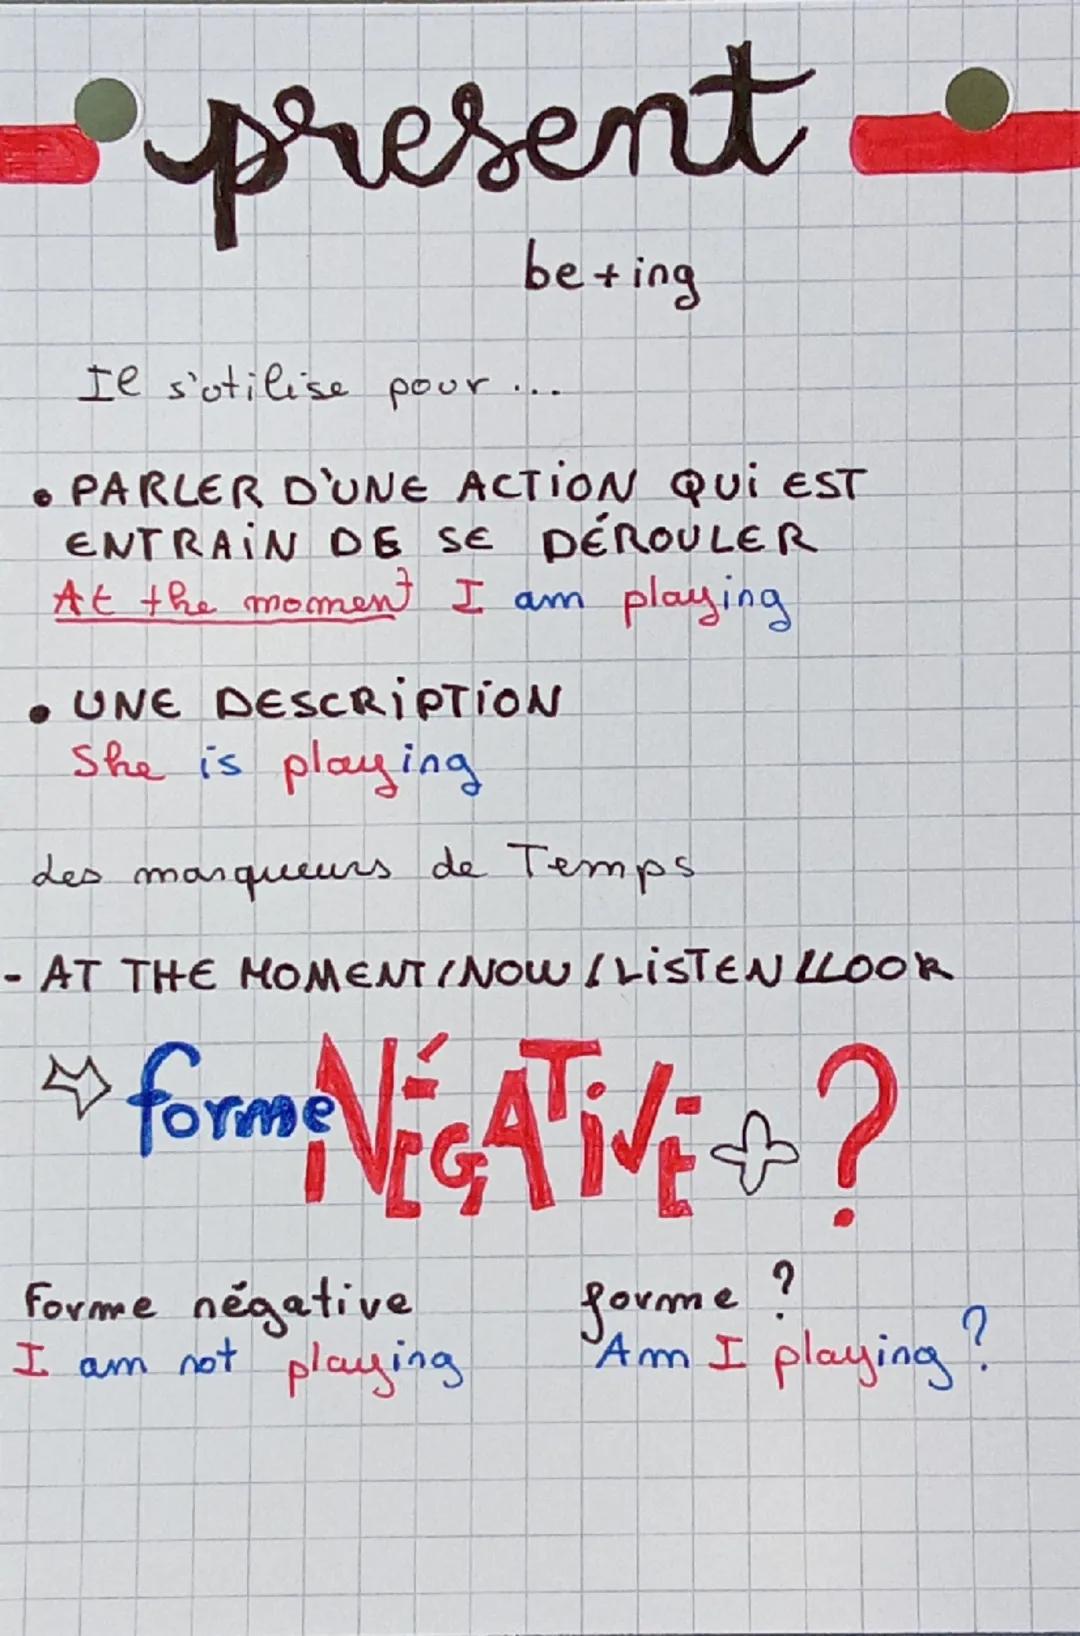 present
be + ing
Il s'utilise pour ...
• PARLER D'UNE ACTION QUI EST
ENTRAIN DE SE DÉROULER
At the moment I am playing
• UNE DESCRIPTION
She is playing
des marqueurs de Temps
- AT THE MOMENT / NOW / LISTEN / LOOK
forme NÉGATIVE + ?
forme négative
I am not playing
forme ?
Am I playing ?